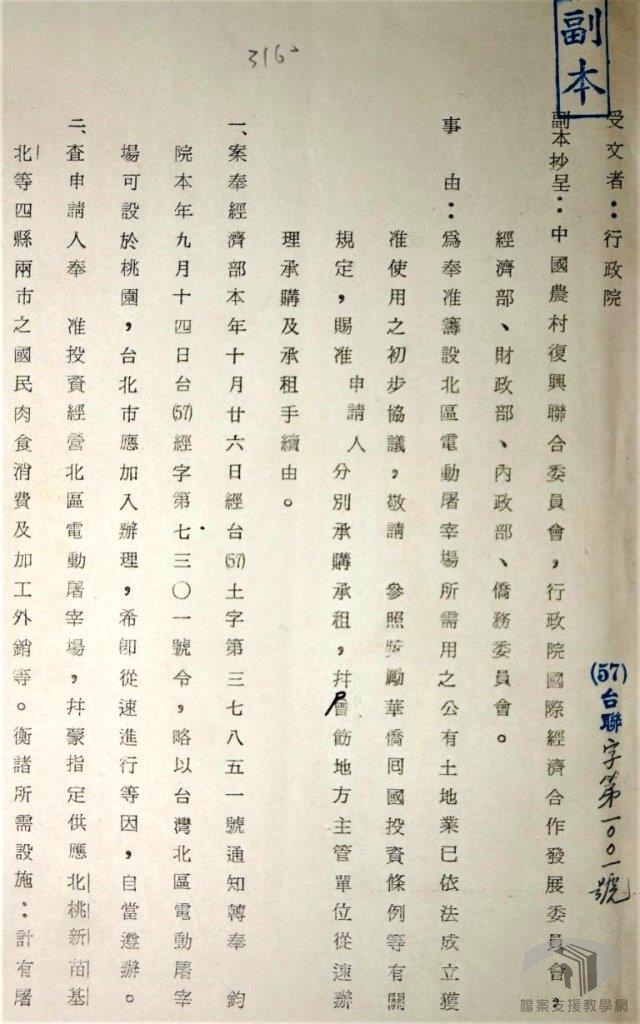 副本
316、
受文者：行政院
(57)台聯字第一〇〇一號
副本抄呈：中國農村復興聯合委員會，行政院國際經濟合作發展委員會，
經濟部、財政部、內政部、僑務委員會。
事　由：為奉准籌設北區電動屠宰場所需用之公有土地業已依法成立獲
准使用之初步協議，敬請　參照獎勵華僑囘國投資條例等有關
規定，賜准　申請人　分別承購承租，幷會飭地方主管單位從速辦
理承購及承租手續由。
一、案奉經濟部本年十月廿六日經台(57)土字第三七八五一號通知轉奉　鈞
院本年九月十四日台(57)經字第七三〇一號令，略以台灣北區電動屠宰
場可設於桃園，台北市應加入辦理，希卽從速進行等因，自當遵辦。
二、查申請人奉　准投資經營北區電動屠宰場，幷蒙指定供應北桃新苗基
北等四縣兩市之國民肉食消費及加工外銷等。衡諸所需設施：計有屠
檔案支援教學網